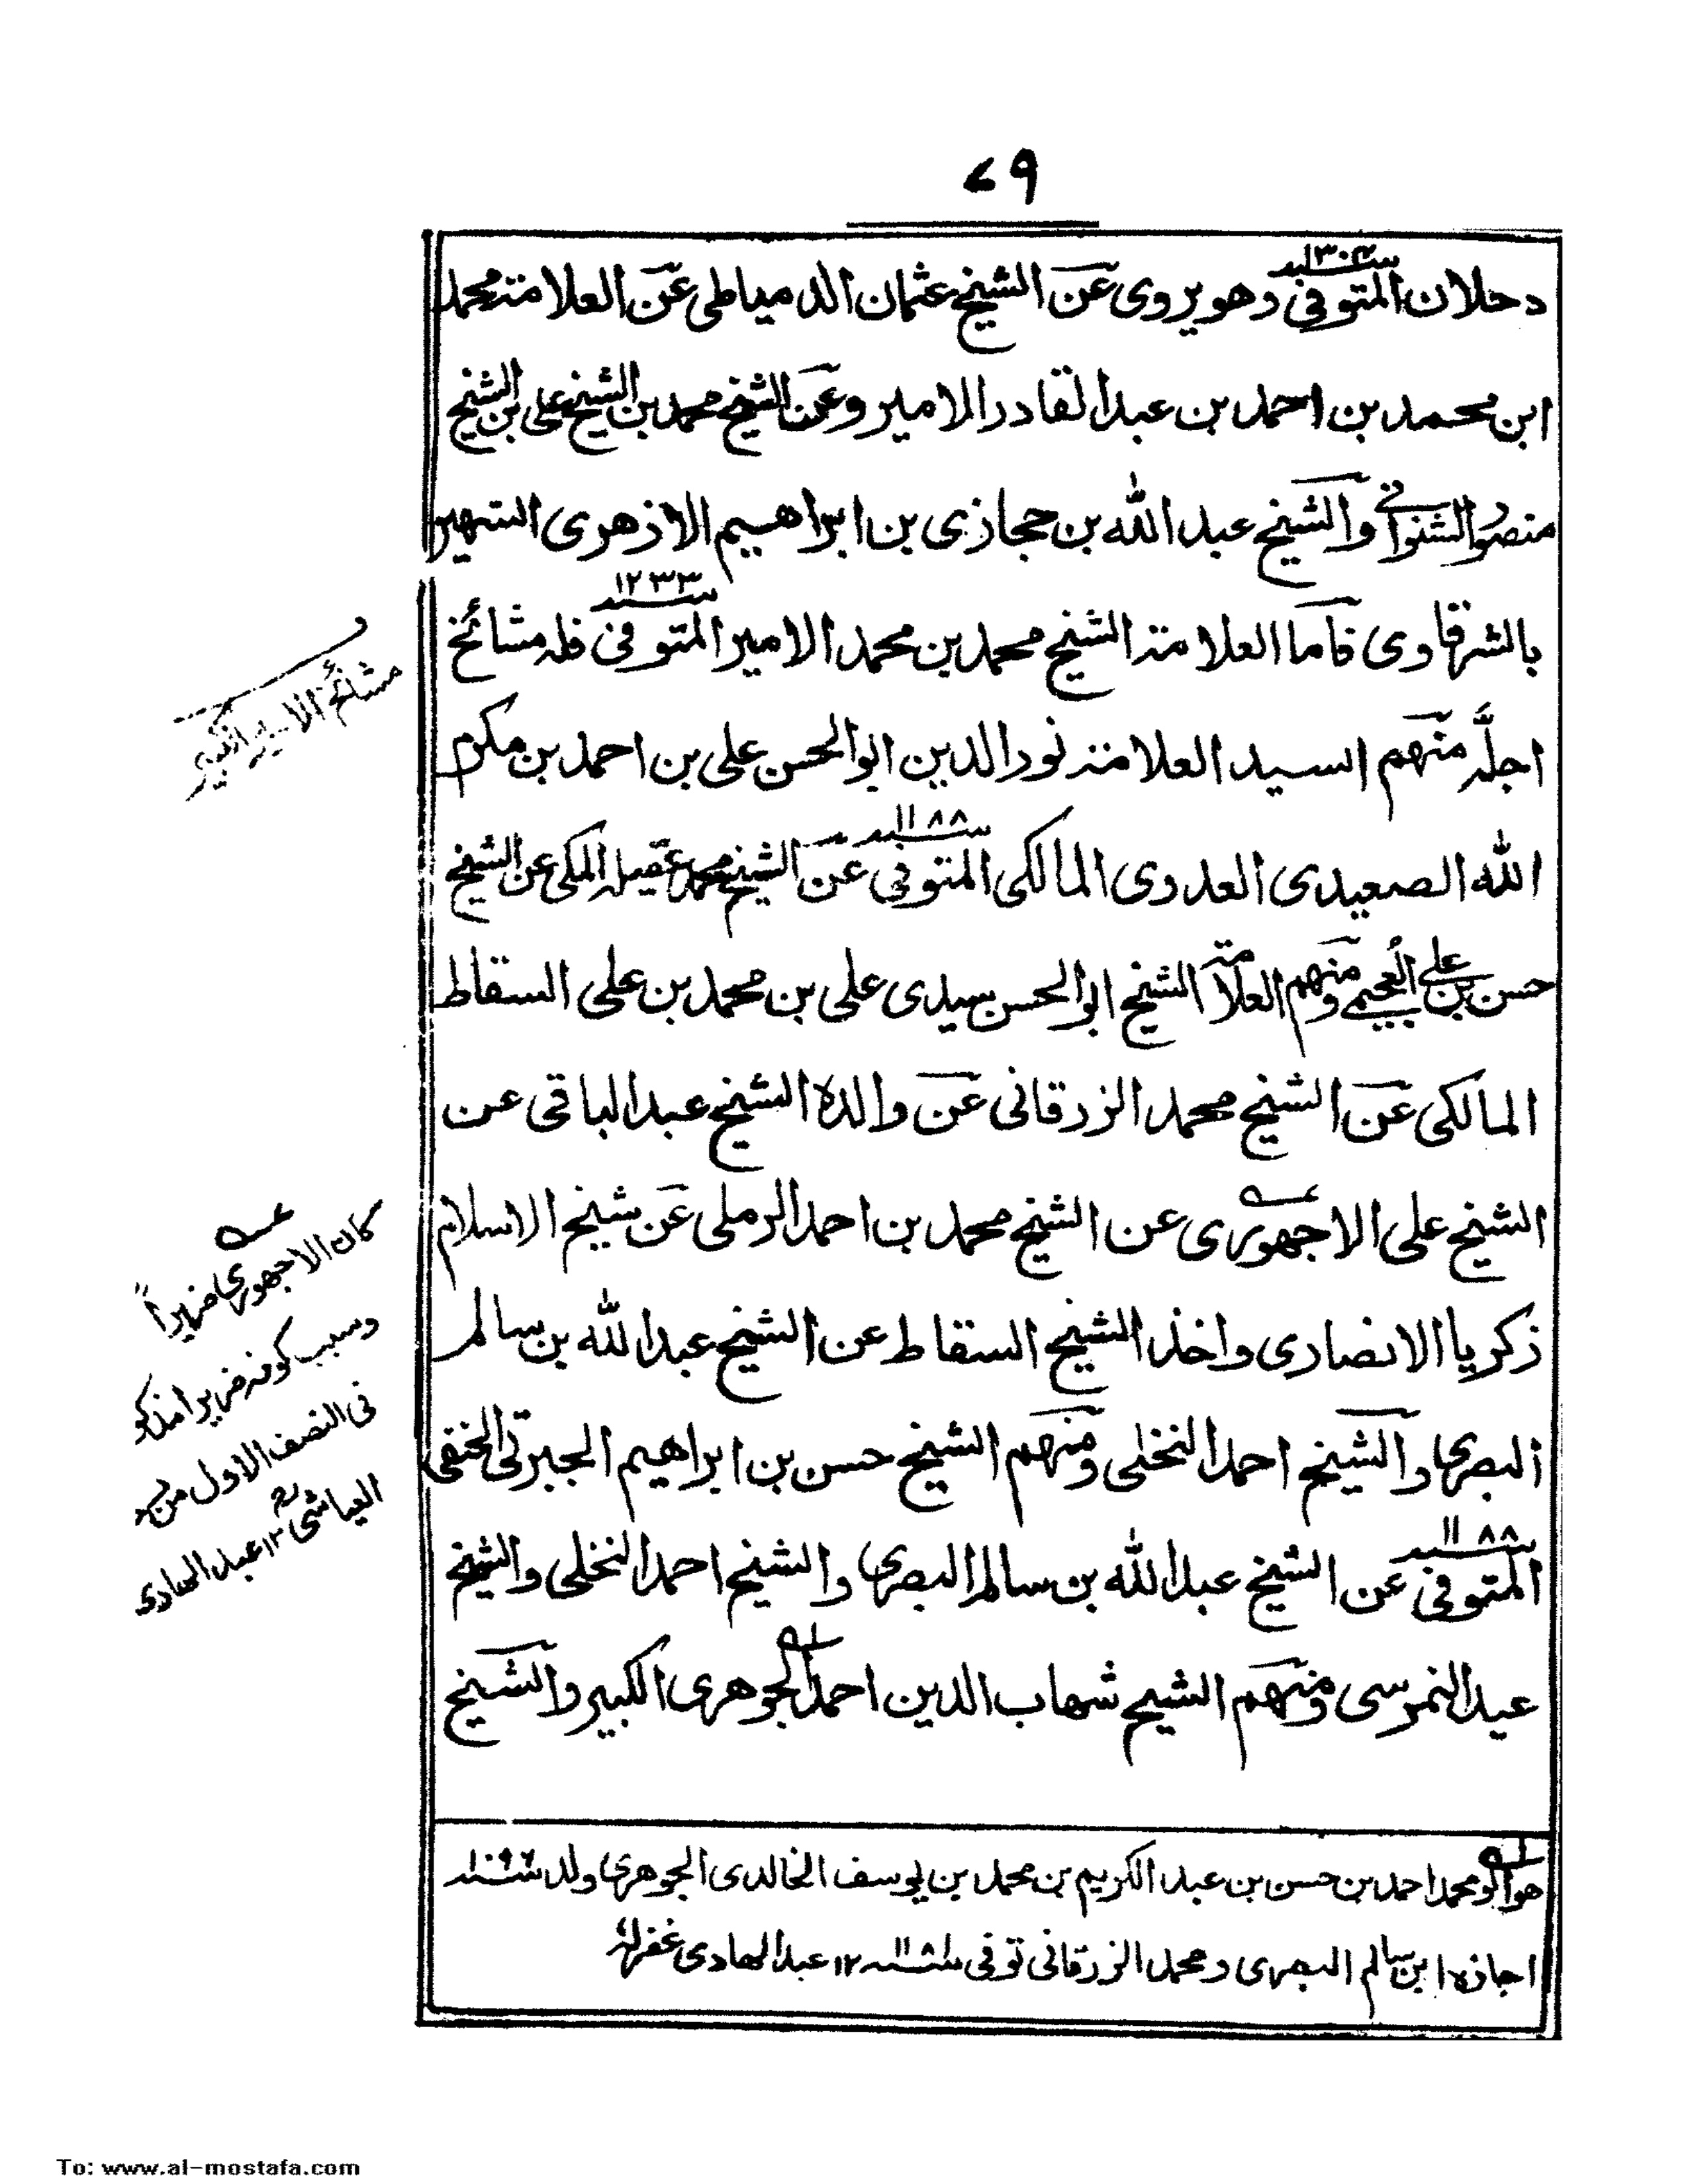 ٦٩
دحلان المتوفى سنة ١٣٠٤ وهو يروى عن الشيخ عثمان الدمياطى عن العلامة محمد
ابن محمد بن احمد بن عبد القادر الامير وعن الشيخ محمد بن الشيخ على بن الشيخ
منصور الشنوانى والشيخ عبد الله بن حجازى بن ابراهيم الازهرى الشهير
بالشرقاوى فاما العلامة الشيخ محمد بن محمد الامير المتوفى سنة ١٢٣٣ فله مشائخ
اجلّه منهم السيد العلامة نور الدين ابو الحسن على بن احمد بن مكرم
الله الصعيدى العدوى المالكى المتوفى سنة ١١٨٨ عن الشيخ محمد عقيله المكى عن الشيخ
حسن بن على العجيمى ومنهم العلامة الشيخ ابو الحسن سيدى على بن محمد بن على السقاط
المالكى عن الشيخ محمد الزرقانى عن والده الشيخ عبد الباقى عن
الشيخ على الاجهورى عن الشيخ محمد بن احمد الرملى عن شيخ الاسلام
زكريا الانصارى واخذ الشيخ السقاط عن الشيخ عبد الله بن سالم
البصرى والشيخ احمد النخلى ومنهم الشيخ حسن بن ابراهيم الجبرتى الحنفى
المتوفى سنة ١١٨٨ عن الشيخ عبد الله بن سالم البصرى والشيخ احمد النخلى والشيخ
عيد النمرسى ومنهم الشيخ شهاب الدين احمد الجوهرى الكبير والشيخ
مشائخ الامير الكبير
كان الاجهورى ضريراً
وسبب كونه ضريرا مذكور
فى النصف الاول من
العياشى ١٢ عبد الهادى
هو ابو محمد احمد بن حسن بن عبد الكريم بن محمد بن يوسف الخالدى الجوهرى ولد سنة ١٠٩٦
اجازه ابن سالم البصرى ومحمد الزرقانى توفى سنة ١١٨١ ١٢ عبد الهادى غفرله
To: www.al-mostafa.com